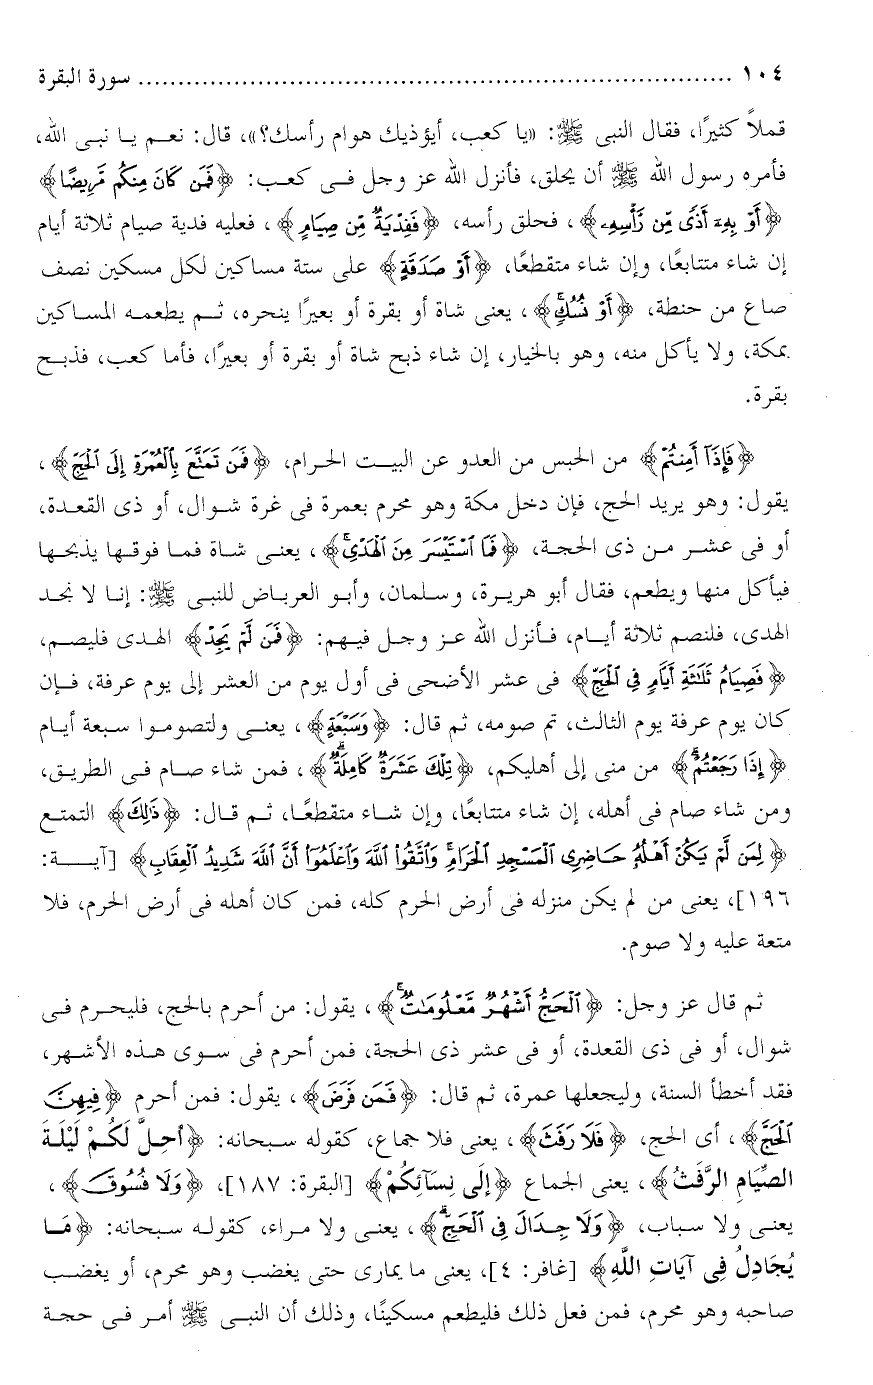 ١٠٤ .......................................................................... سورة البقرة
قملاً كثيرًا، فقال النبى ﷺ: «يا كعب، أيؤذيك هوام رأسك؟»، قال: نعم يا نبى الله،
فأمره رسول الله ﷺ أن يحلق، فأنزل الله عز وجل فى كعب: ﴿فَمَن كَانَ مِنكُم مَّرِيضًا﴾
﴿أَوْ بِهِۦٓ أَذًى مِّن رَّأْسِهِۦ﴾، فحلق رأسه، ﴿فَفِدْيَةٌ مِّن صِيَامٍ﴾، فعليه فدية صيام ثلاثة أيام
إن شاء متتابعًا، وإن شاء متقطعًا، ﴿أَوْ صَدَقَةٍ﴾ على ستة مساكين لكل مسكين نصف
صاع من حنطة، ﴿أَوْ نُسُكٍۚ﴾، يعنى شاة أو بقرة أو بعيرًا ينحره، ثم يطعمه المساكين
بمكة، ولا يأكل منه، وهو بالخيار، إن شاء ذبح شاة أو بقرة أو بعيرًا، فأما كعب، فذبح
بقرة.
﴿فَإِذَآ أَمِنتُمْ﴾ من الحبس من العدو عن البيت الحرام، ﴿فَمَن تَمَتَّعَ بِٱلْعُمْرَةِ إِلَى ٱلْحَجِّ﴾،
يقول: وهو يريد الحج، فإن دخل مكة وهو محرم بعمرة فى غرة شوال، أو ذى القعدة،
أو فى عشر من ذى الحجة، ﴿فَمَا ٱسْتَيْسَرَ مِنَ ٱلْهَدْىِۚ﴾، يعنى شاة فما فوقها يذبحها
فيأكل منها ويطعم، فقال أبو هريرة، وسلمان، وأبو العرباض للنبى ﷺ: إنا لا نجد
الهدى، فلنصم ثلاثة أيام، فأنزل الله عز وجل فيهم: ﴿فَمَن لَّمْ يَجِدْ﴾ الهدى فليصم،
﴿فَصِيَامُ ثَلَٰثَةِ أَيَّامٍ فِى ٱلْحَجِّ﴾ فى عشر الأضحى فى أول يوم من العشر إلى يوم عرفة، فإن
كان يوم عرفة يوم الثالث، تم صومه، ثم قال: ﴿وَسَبْعَةٍ﴾، يعنى ولتصوموا سبعة أيام
﴿إِذَا رَجَعْتُمْۗ﴾ من منى إلى أهليكم، ﴿تِلْكَ عَشَرَةٌ كَامِلَةٌۗ﴾، فمن شاء صام فى الطريق،
ومن شاء صام فى أهله، إن شاء متتابعًا، وإن شاء متقطعًا، ثم قال: ﴿ذَٰلِكَ﴾ التمتع
﴿لِمَن لَّمْ يَكُنْ أَهْلُهُۥ حَاضِرِى ٱلْمَسْجِدِ ٱلْحَرَامِۚ وَٱتَّقُوا۟ ٱللَّهَ وَٱعْلَمُوٓا۟ أَنَّ ٱللَّهَ شَدِيدُ ٱلْعِقَابِ﴾ [آية:
١٩٦]، يعنى من لم يكن منزله فى أرض الحرم كله، فمن كان أهله فى أرض الحرم، فلا
متعة عليه ولا صوم.
ثم قال عز وجل: ﴿ٱلْحَجُّ أَشْهُرٌ مَّعْلُومَٰتٌۚ﴾، يقول: من أحرم بالحج، فليحرم فى
شوال، أو فى ذى القعدة، أو فى عشر ذى الحجة، فمن أحرم فى سوى هذه الأشهر،
فقد أخطأ السنة، وليجعلها عمرة، ثم قال: ﴿فَمَن فَرَضَ﴾، يقول: فمن أحرم ﴿فِيهِنَّ
ٱلْحَجَّ﴾، أى الحج، ﴿فَلَا رَفَثَ﴾، يعنى فلا جماع، كقوله سبحانه: ﴿أُحِلَّ لَكُمْ لَيْلَةَ
الصِّيَامِ الرَّفَثُ﴾، يعنى الجماع ﴿إِلَى نِسَآئِكُمْ﴾ [البقرة: ١٨٧]، ﴿وَلَا فُسُوقَ﴾،
يعنى ولا سباب، ﴿وَلَا جِدَالَ فِى ٱلْحَجِّۗ﴾، يعنى ولا مراء، كقوله سبحانه: ﴿مَا
يُجَادِلُ فِى آيَاتِ اللَّهِ﴾ [غافر: ٤]، يعنى ما يمارى حتى يغضب وهو محرم، أو يغضب
صاحبه وهو محرم، فمن فعل ذلك فليطعم مسكينًا، وذلك أن النبى ﷺ أمر فى حجة